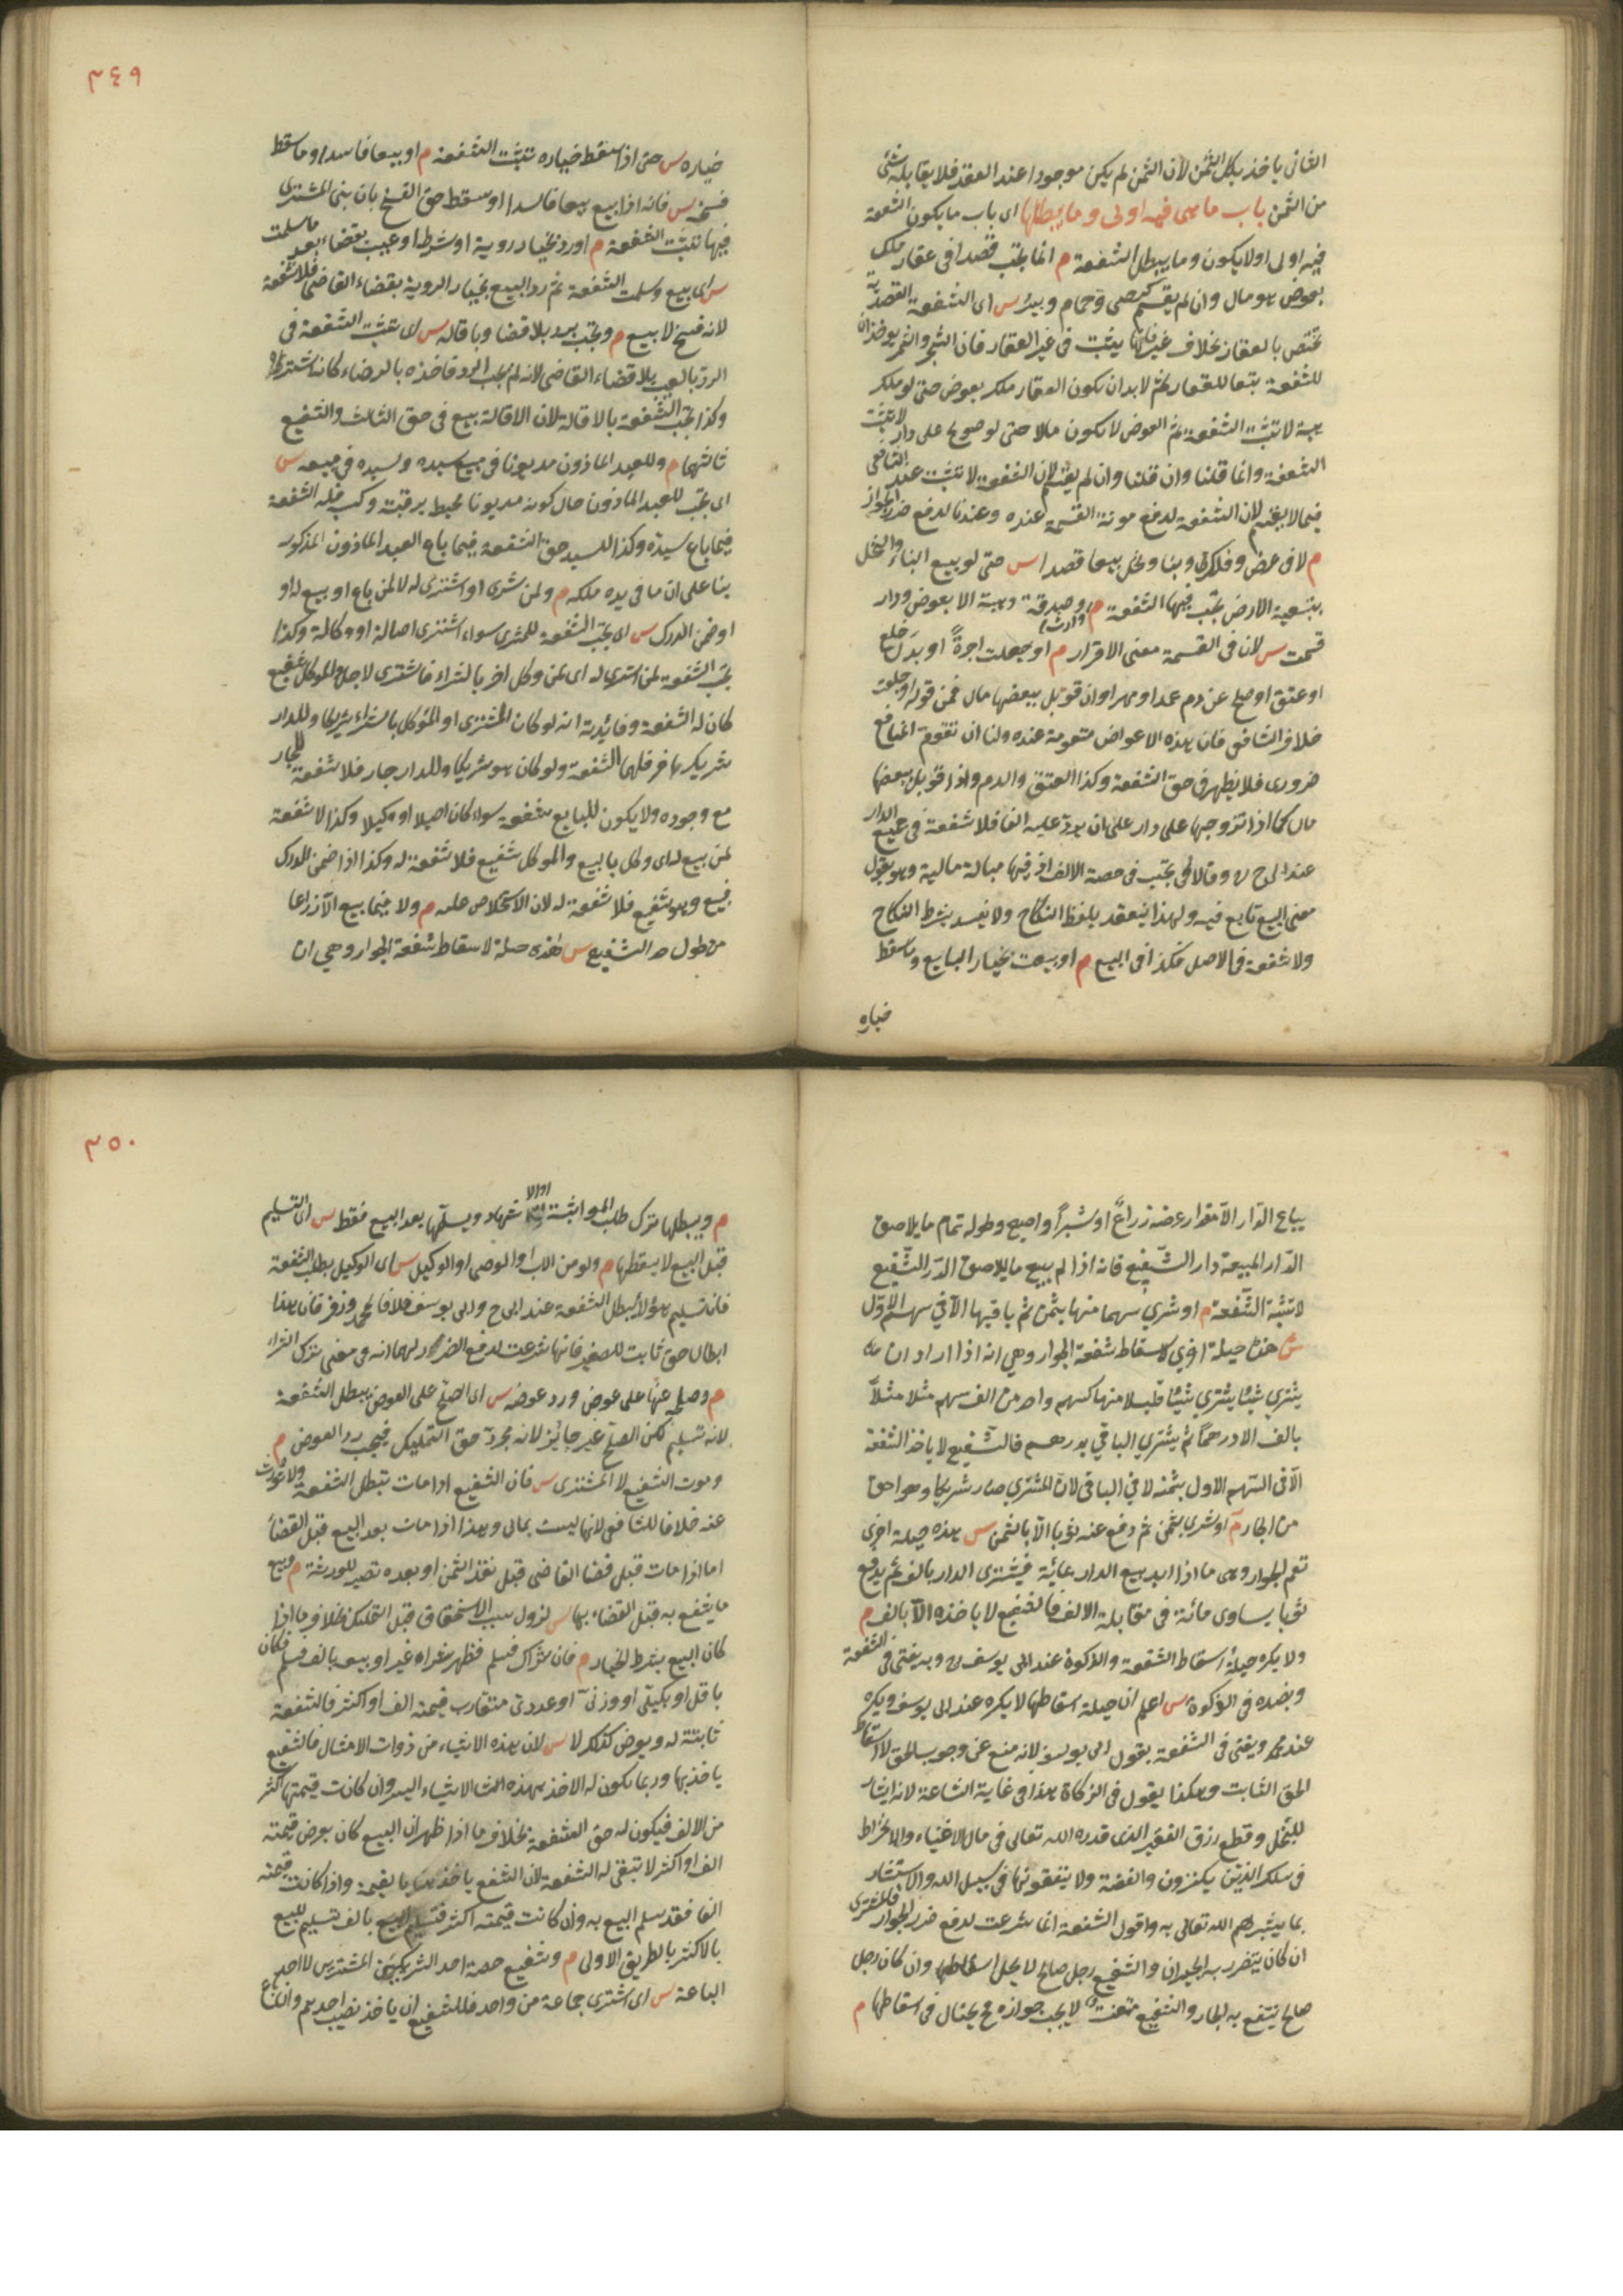 الثاني ياخذ بكل الثمن لان الثمن لم يكن موجودا عند العقد فلا يقابله شئ
من الثمن باب ما هى فيه اولى وما يبطلها اى باب ما يكون الشفعة
فيه اولى اولا يكون وما يبطل الشفعة م انما تجب قصدا فى عقار ملك
بعوض هو مال وان لم يقسم كرحى وحمام وبير س اى الشفعة القصدية
تختص بالعقار بخلاف غير فانها يثبت فى غير العقار فان الشجر والثمر يوخذان
للشفعة تبعا للعقار ثم لابد ان يكون العقار ملك بعوض حتى لو ملك
بهبة لا تثبت الشفعة ثم العوض لا يكون مالا حتى لو صولح على دار لا تثبت
الشفعة وانما قلنا وان قلنا وان لم يقسم لان الشفعة لا تثبت عند الشافعى
فيما لا يقسم لان الشفعة لدفع مونة القسمة عنده وعندنا لدفع ضرر الجوار
م لا فى عرض وفلك وبنا ونخل بيعا قصدا س حتى لو بيع البناء والنخل
بتبعية الارض تجب فيها الشفعة م وارث وصدقة وهبة الا بعوض ودار
قسمت س لان فى القسمة معنى الاقرار م او جعلت اجرة او بدل خلع
او عتق او صلح عن دم عمدا ومهر وان قوبل ببعضها مال فمن قوله او جعلت
خلاف الشافعى فان هذه الاعواض متقومة عنده ولنا ان تقوم المنافع
ضرورى فلا يظهر فى حق الشفعة وكذا العتق والدم واذا قوبل ببعضها
مال كما اذا تزوجها على دار على ان يرد عليه الفا فلا شفعة فى جميع الدار
عند ابى ح وقالا تجب فى حصة الالف اذ فيها مبالة مالية وهو يقول
معنى البيع تابع فيه ولهذا ينعقد بلفظ النكاح ولا يفسد بشرط النكاح
ولا شفعة فى الاصل فكذا فى البيع م او بيعت بخيار البايع وما سقط
خياره
٣٤٩
خياره س حتى اذا سقط خياره تثبت الشفعة م او بيعا فاسدا وما سقط
فسخه س فانه اذا بيع بيعا فاسدا وسقط حق الفسخ بان بنى المشترى
فيها تثبت الشفعة م او رد بخيار روية او شرط او عيب بقضاء بعد ما سلمت
س اى بيع وسلمت الشفعة ثم رد البيع بخيار الروية بقضاء القاضى فلا شفعة
لانه فسخ لا بيع م وتجب برد بلا قضا وباقالة س اى تثبت الشفعة فى
الرد بالعيب بلا قضاء القاضى لانه لم يجب الرد فاخذه بالرضاء كانه اشتراه
وكذا تجب الشفعة بالاقالة لان الاقالة بيع فى حق الثالث والشفيع
ثالثهما م وللعبد الماذون مديونا فى مبيع سيده ولسيده فى مبيعه س
اى تجب للعبد الماذون حال كونه مديونا محيط برقبته وكسبه فله الشفعة
فيما باع سيده وكذا للسيد حق الشفعة فيما باع العبد الماذون المذكور
بنا على ان ما فى يده ملكه م ولمن شرى او اشترى له لا لمن باع او بيع له او
او ضمن الدرك س اى تجب الشفعة للمشترى سواء اشترى اصالة او وكالة وكذا
تجب الشفعة لمن اشترى له اى لمن وكل اخر بالشراء فاشترى لاجل الموكل شفيع
كان له الشفعة وفائدته انه لو كان المشترى او الموكل بالشراء شريكا وللدار
شريك اخر فلهما الشفعة ولو كان هو شريكا وللدار جار فلا شفعة للجار
مع وجوده ولا يكون للبايع شفعة سواء كان اصيلا او وكيلا وكذا لا شفعة
لمن بيع له اى وكل بالبيع والموكل شفيع فلا شفعة له وكذا اذا ضمن الدرك
فبيع وهو شفيع فلا شفعة له لان الاستخلاص عليه م ولا فيما بيع الا ذراعا
من طول حد الشفيع س هذه حيلة لاسقاط شفعة الجوار وهي ان
يباع الدار الا مقدار عرضه ذراع او شبرا واصبع وطوله تمام ما يلاصق
الدار المبيعة دار الشفيع فانه اذا لم يبيع ما يلاصق الدر الشفيع
لا تثبت الشفعة م او شري سهما منها بثمن ثم باقيها الا في سهم الاول
س هذه حيلة اخري لاسقاط شفعة الجوار وهي انه اذا اراد ان
يشتري شيئا يشتري شيئا قليلا منها كسهم واحد من الف سهم مثلا مثلا
بالف الا درهما ثم يشتري الباقي بدرهم فالشفيع لا ياخذ الشفعة
الا في السهم الاول بثمنه لا في الباقي لان المشتري صار شريكا وهو احق
من الجار م او شرى بثمن ثم دفع عنه ثوبا الا بالثمن س هذه حيلة اخرى
تعم الجوار وهى ما اذا اريد بيع الدار بمائة فيشترى الدار بالف ثم يدفع
ثوبا يساوى مائة فى مقابلة الالف فالشفيع لا ياخذه الا بالف م
ولا يكره حيلة اسقاط الشفعة والزكوة عند ابى يوسف وبه يفتى فى الشفعة
وبضده فى الزكوة س اعلم ان حيلة اسقاطها لا يكره عند ابى يوسف ويكره
عند محمد ويفتى فى الشفعة بقول ابى يوسف لانه منع عن وجوب الحق لا اسقاط
الحق الثابت وهكذا يقول فى الزكاة هذا فى غاية الشناعة لانه ايثار
للبخل وقطع رزق الفقير الذى قدره الله تعالى فى مال الاغنياء والانخراط
فى سلك الذين يكنزون والفضة ولا ينفقونها فى سبيل الله والاستبشار
بما يبشرهم الله تعالى به واقول الشفعة انما شرعت لدفع ضرر الجوار فالمشترى
ان كان يتضرر به الجيران والشفيع رجل صالح لا يحل اسقاطها وان كان رجل
صالح ينتفع به الجار والشفيع متعنت لا يحب جواره فح يحتال فى اسقاطها م
٣٥٠
م ويبطلها ترك طلب المواثبة اوالا شهاد ويسلمها بعد البيع فقط س اى التسليم
قبل البيع لا يسقطها م ولو من الاب او الوصى او الوكيل س اى الوكيل بطلب الشفعة
فان تسليم هؤلاء يبطل الشفعة عند ابى ح وابى يوسف خلافا لمحمد وزفر فان هذا
ابطال حق ثابت للصغير فانها شرعت لدفع الضرر ولهما انه فى معنى ترك الشراء
م وصلحه عنها على عوض ورد عوضه س اى الصلح على العوض يبطل الشفعة
لانه تسليم لكن الصلح غير جائز لانه مجرد حق التمليك فيجب رد العوض م
وموت الشفيع لا المشترى س فان الشفيع اذا مات تبطل الشفعة ولا تورث
عنه خلافا للشافعى لانها ليست بمال وهذا اذا مات بعد البيع قبل القضاء
اما اذا مات قبل قضا القاضى قبل نقد الثمن او بعده تصير للورثة م وبيع
ما يشفع به قبل القضاء بها س لزول سبب الاستحقاق قبل التملك بخلاف ما اذا
كان البيع بشرط الخيار م فان سلم فظهر شراء غير او بيعه بالف فسلم فكان
باقل او بكيلى او وزنى او عددى متقارب قيمته الف او اكثر فالشفعة
ثابتة له وبعرض كذلك لا س لان هذه الاشياء من ذوات الامثال فالشفيع
ياخذ بها وربما يكون له الاخذ بهذه الاشياء ايسر وان كانت قيمتها اكثر
من الالف فيكون له حق الشفعة بخلاف ما اذا ظهر ان البيع كان بعرض قيمته
الف او اكثر لا تبقى له الشفعة لان الشفيع ياخذ هنا بالقيمة واذا كانت قيمته
الفا فقد سلم البيع به وان كانت قيمته اكثر فتسليم البيع بالف تسليم للبيع
بالاكثر بالطريق الاولى م وشفيع حصة احد الشريكين المشترين لا احد
الباعة س اى اشترى جماعة من واحد فللشفيع ان ياخذ نصيب احدهم وان باع